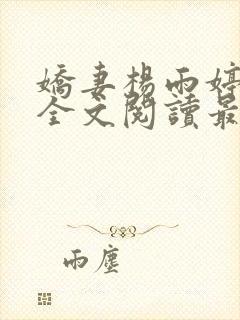 嬌妻楊雨婷
全文閱讀最
雨塵